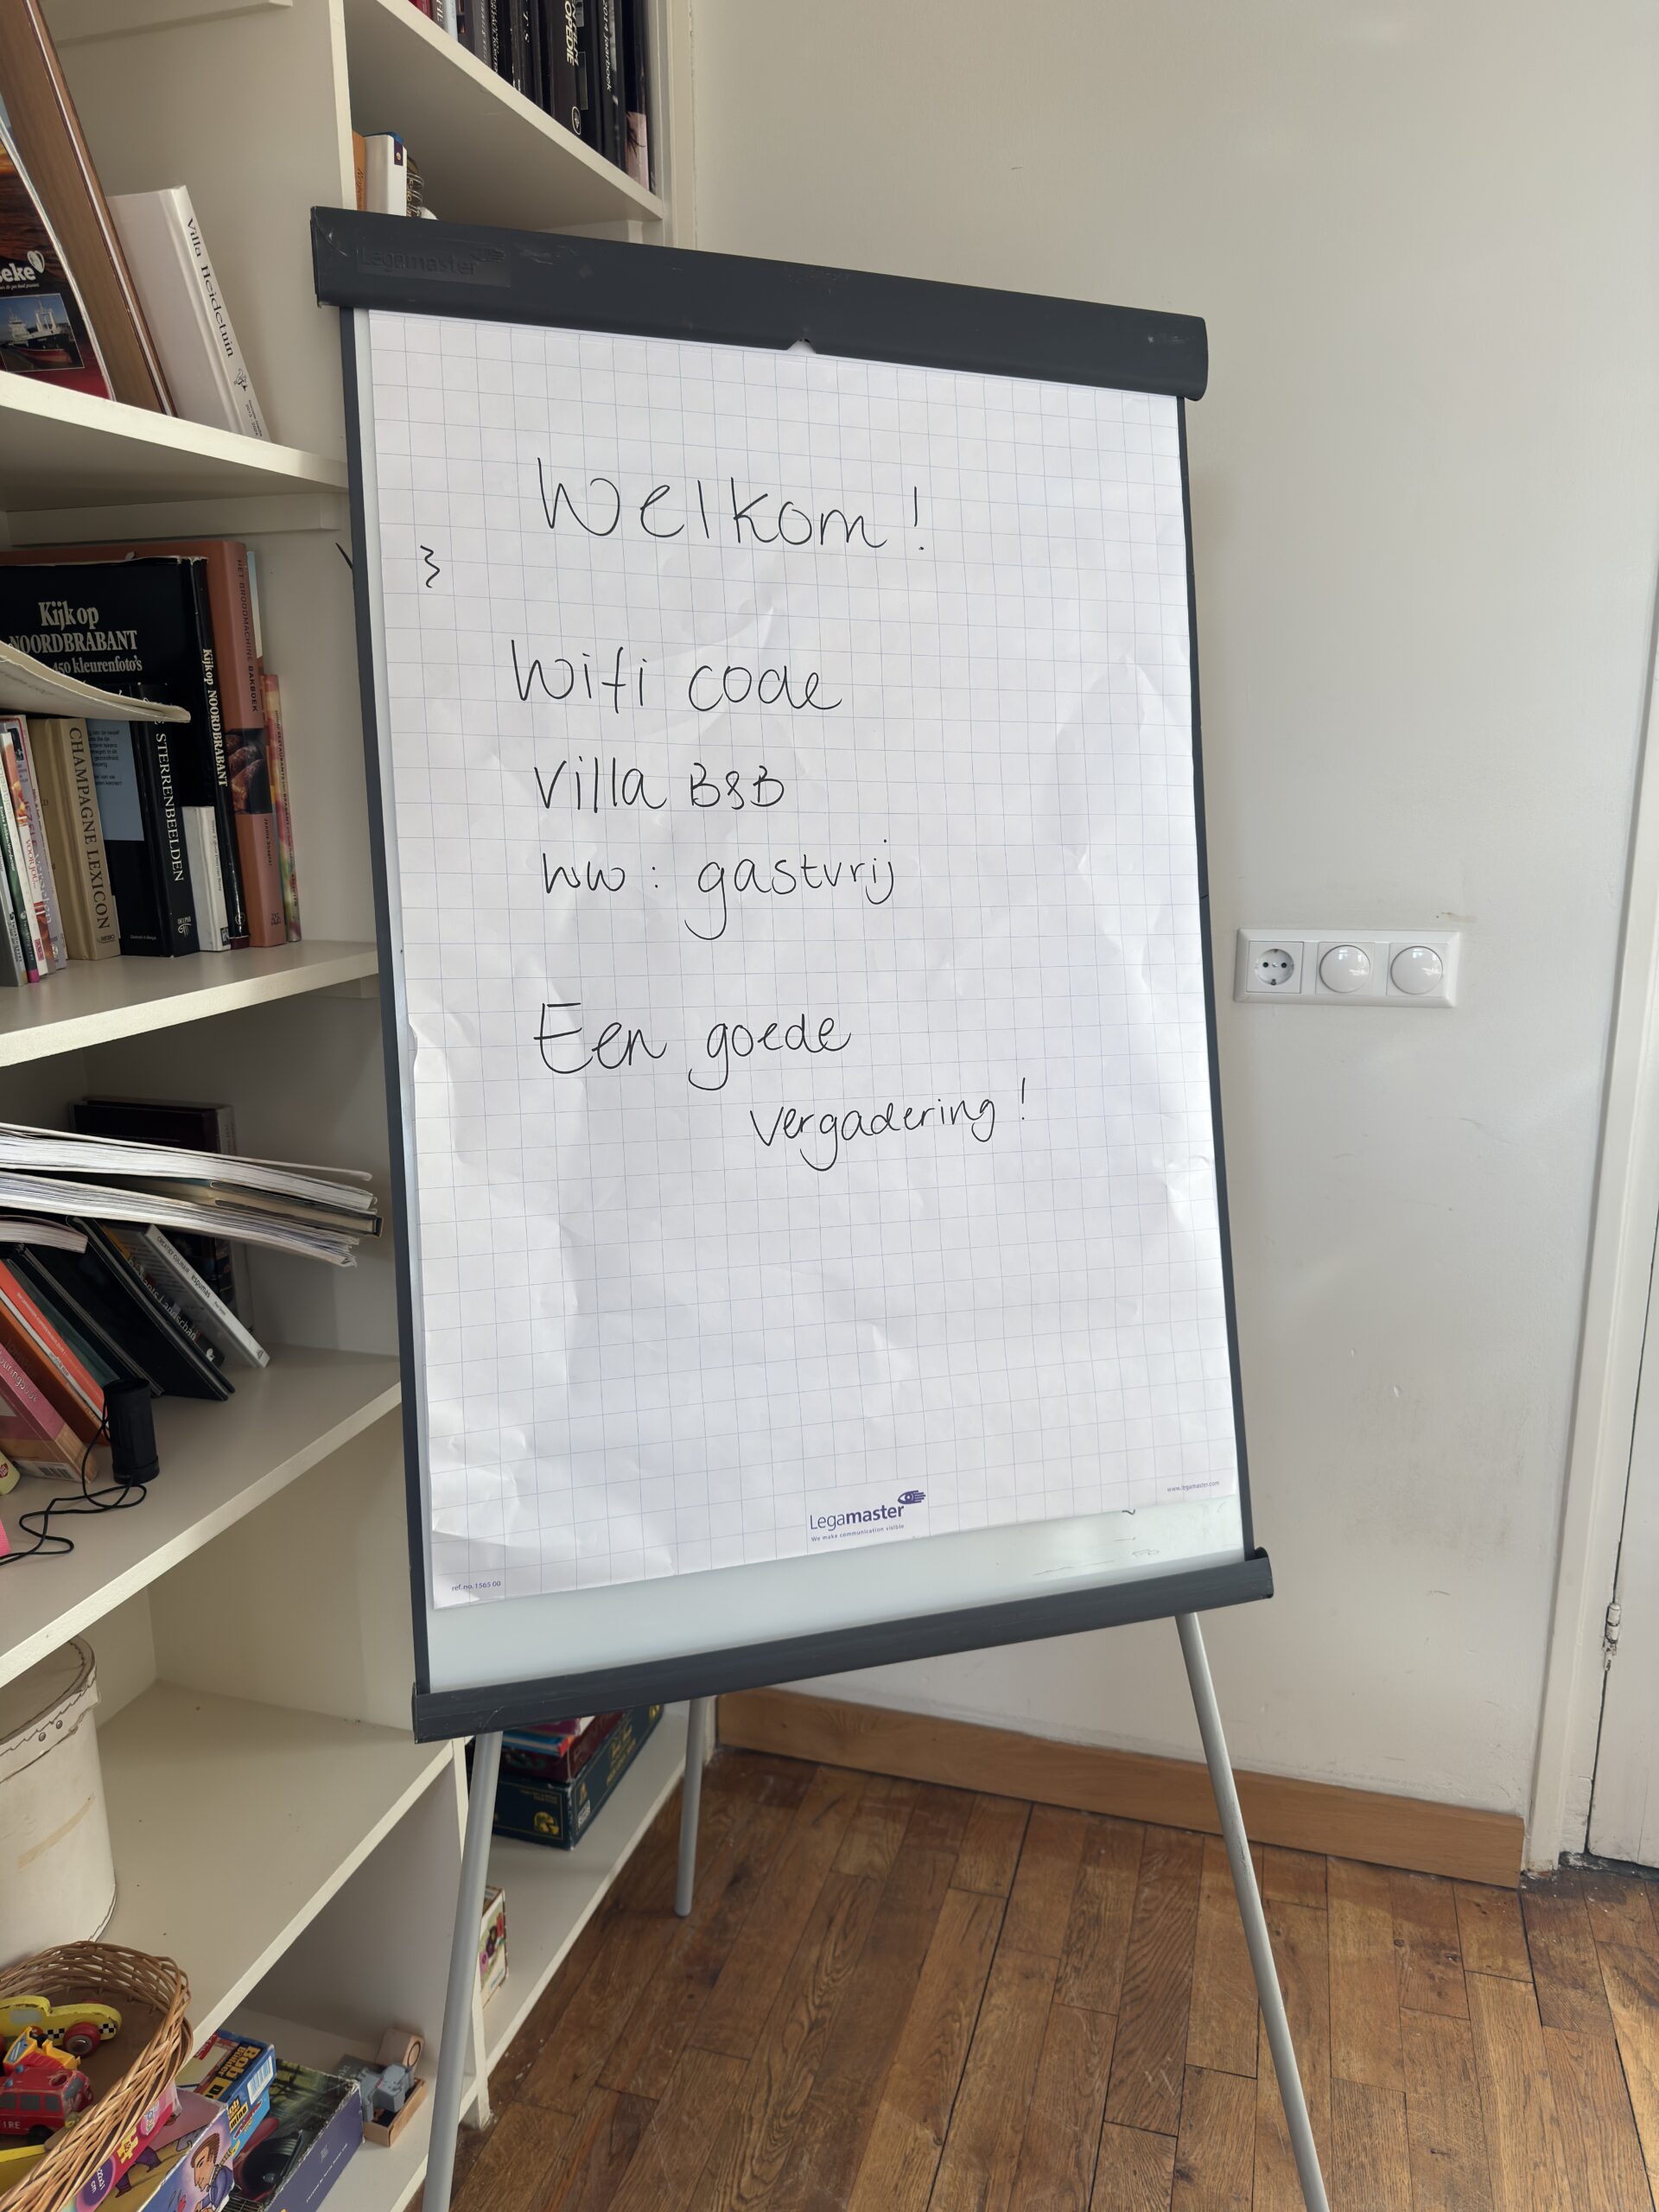 Legamaster
Welkom!
Wifi code
Villa B&B
ww: gastvrij
Een goede
vergadering!
Legamaster
We make communication visible
www.legamaster.com
ref.no. 1565 00
Villa Heidetuin
Kijk op
NOORDBRABANT
450 kleurenfoto's
Kijk op NOORDBRABANT
HET BROODMACHINE BAKBOEK
CHAMPAGNE LEXICON
STERRENBEELDEN